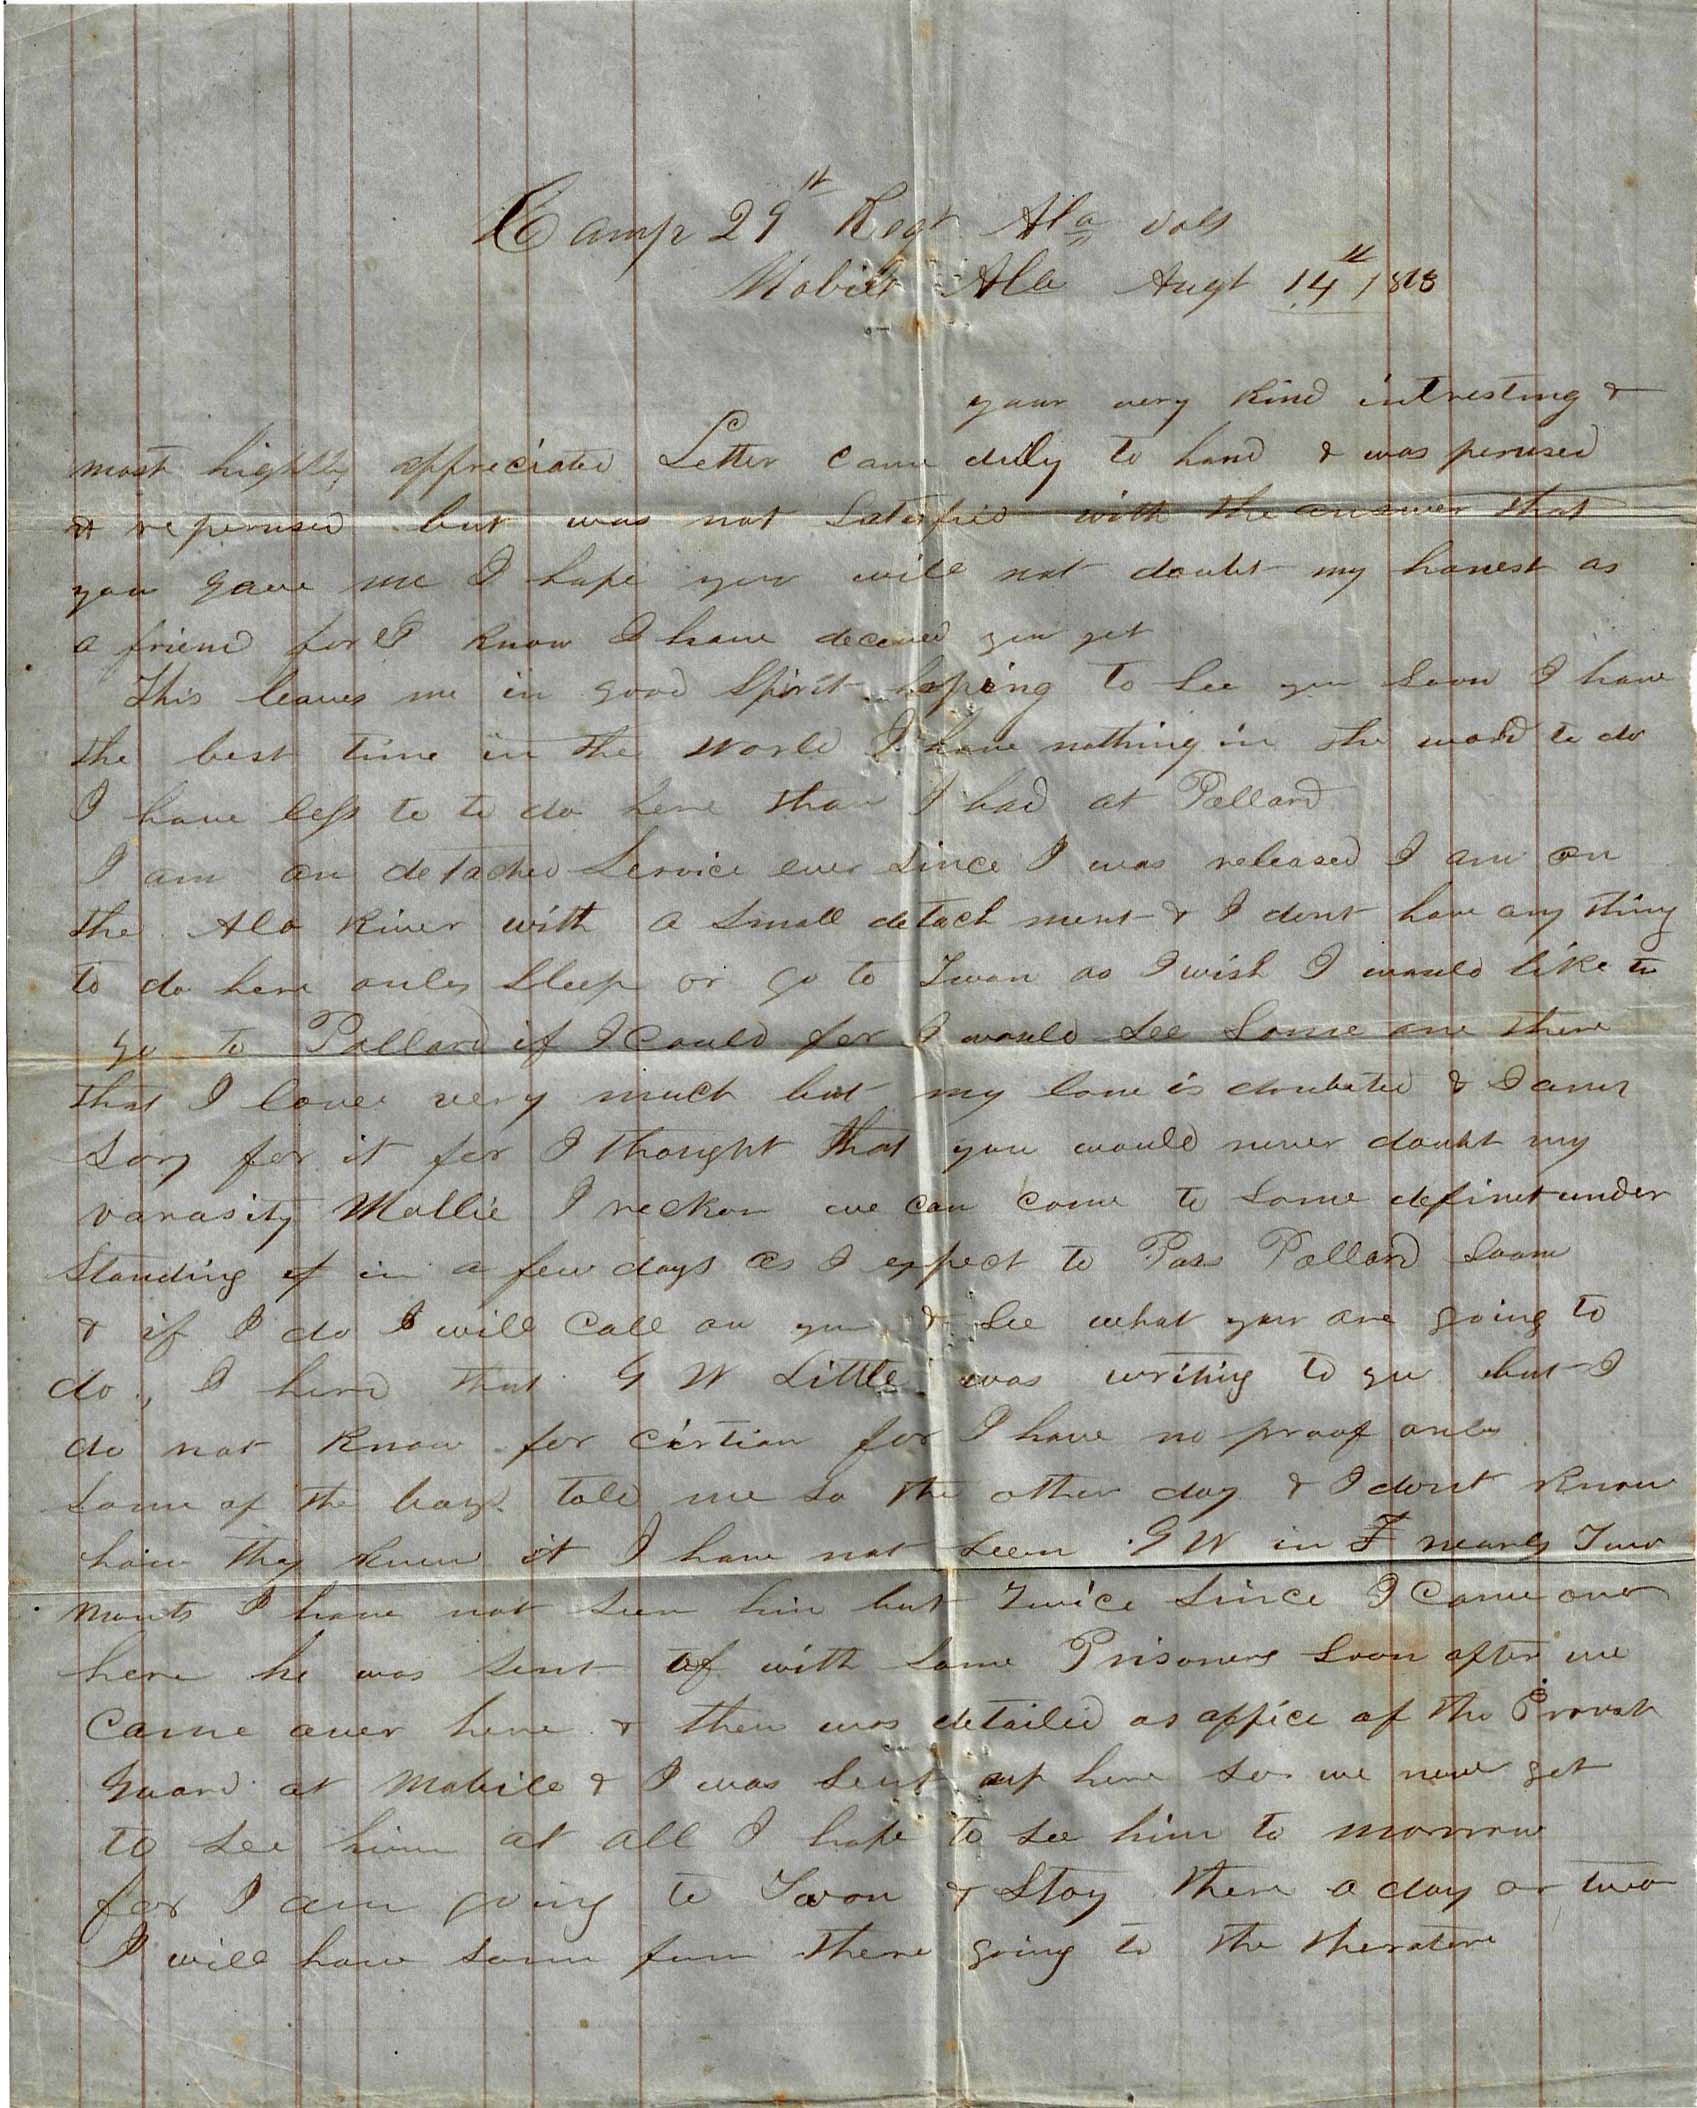 Camp 29th Regt Ala vols
Mobile Ala Augt 14th 1863
your very kind intresting &
most highly appreciated Letter came duly to hand & was perused
& reperused but was not Satisfied with the answer that
you gave me I hope you will not doubt my honest as
a friend for I know I have deceived you yet
This leaves me in good Spirit hoping to See you Soon I have
the best time in the World I have nothing in the world to do
I have less to to do here than I had at Pollard
I am on detached Service ever Since I was released I am on
the Ala River with a Small detach ment & I dont have any thing
to do here only Sleep or go to Twon as I wish I would like to
go to Pollard if I Could for I would See Some one there
that I love very much but my love is doubated & I am
Sory for it for I thought that you would never doubt my
varasity Mollie I reckon we can come to Some definet under
Standing in a few days as I expect to Pass Pollard Soon
& if I do I will Call on you & See what your are going to
do, I herd that G W Little was writing to you but I
do not Know for Certian for I have no proof only
Some of the boys told me So the other day & I dont Know
how they knew it I have not Seen G W in nearly Two
Monts I have not Seen him but Twice Since I Came over
here he was Sent of with Some Prisoners Soon after we
Came over here & then was detailed as office of the Provost
Guard at Mobile & I was Sent up here So we never get
to See him at all I hope to See him to morrow
for I am going to Twon & Stay there a day or two
I will have Some fun there going to the theratere